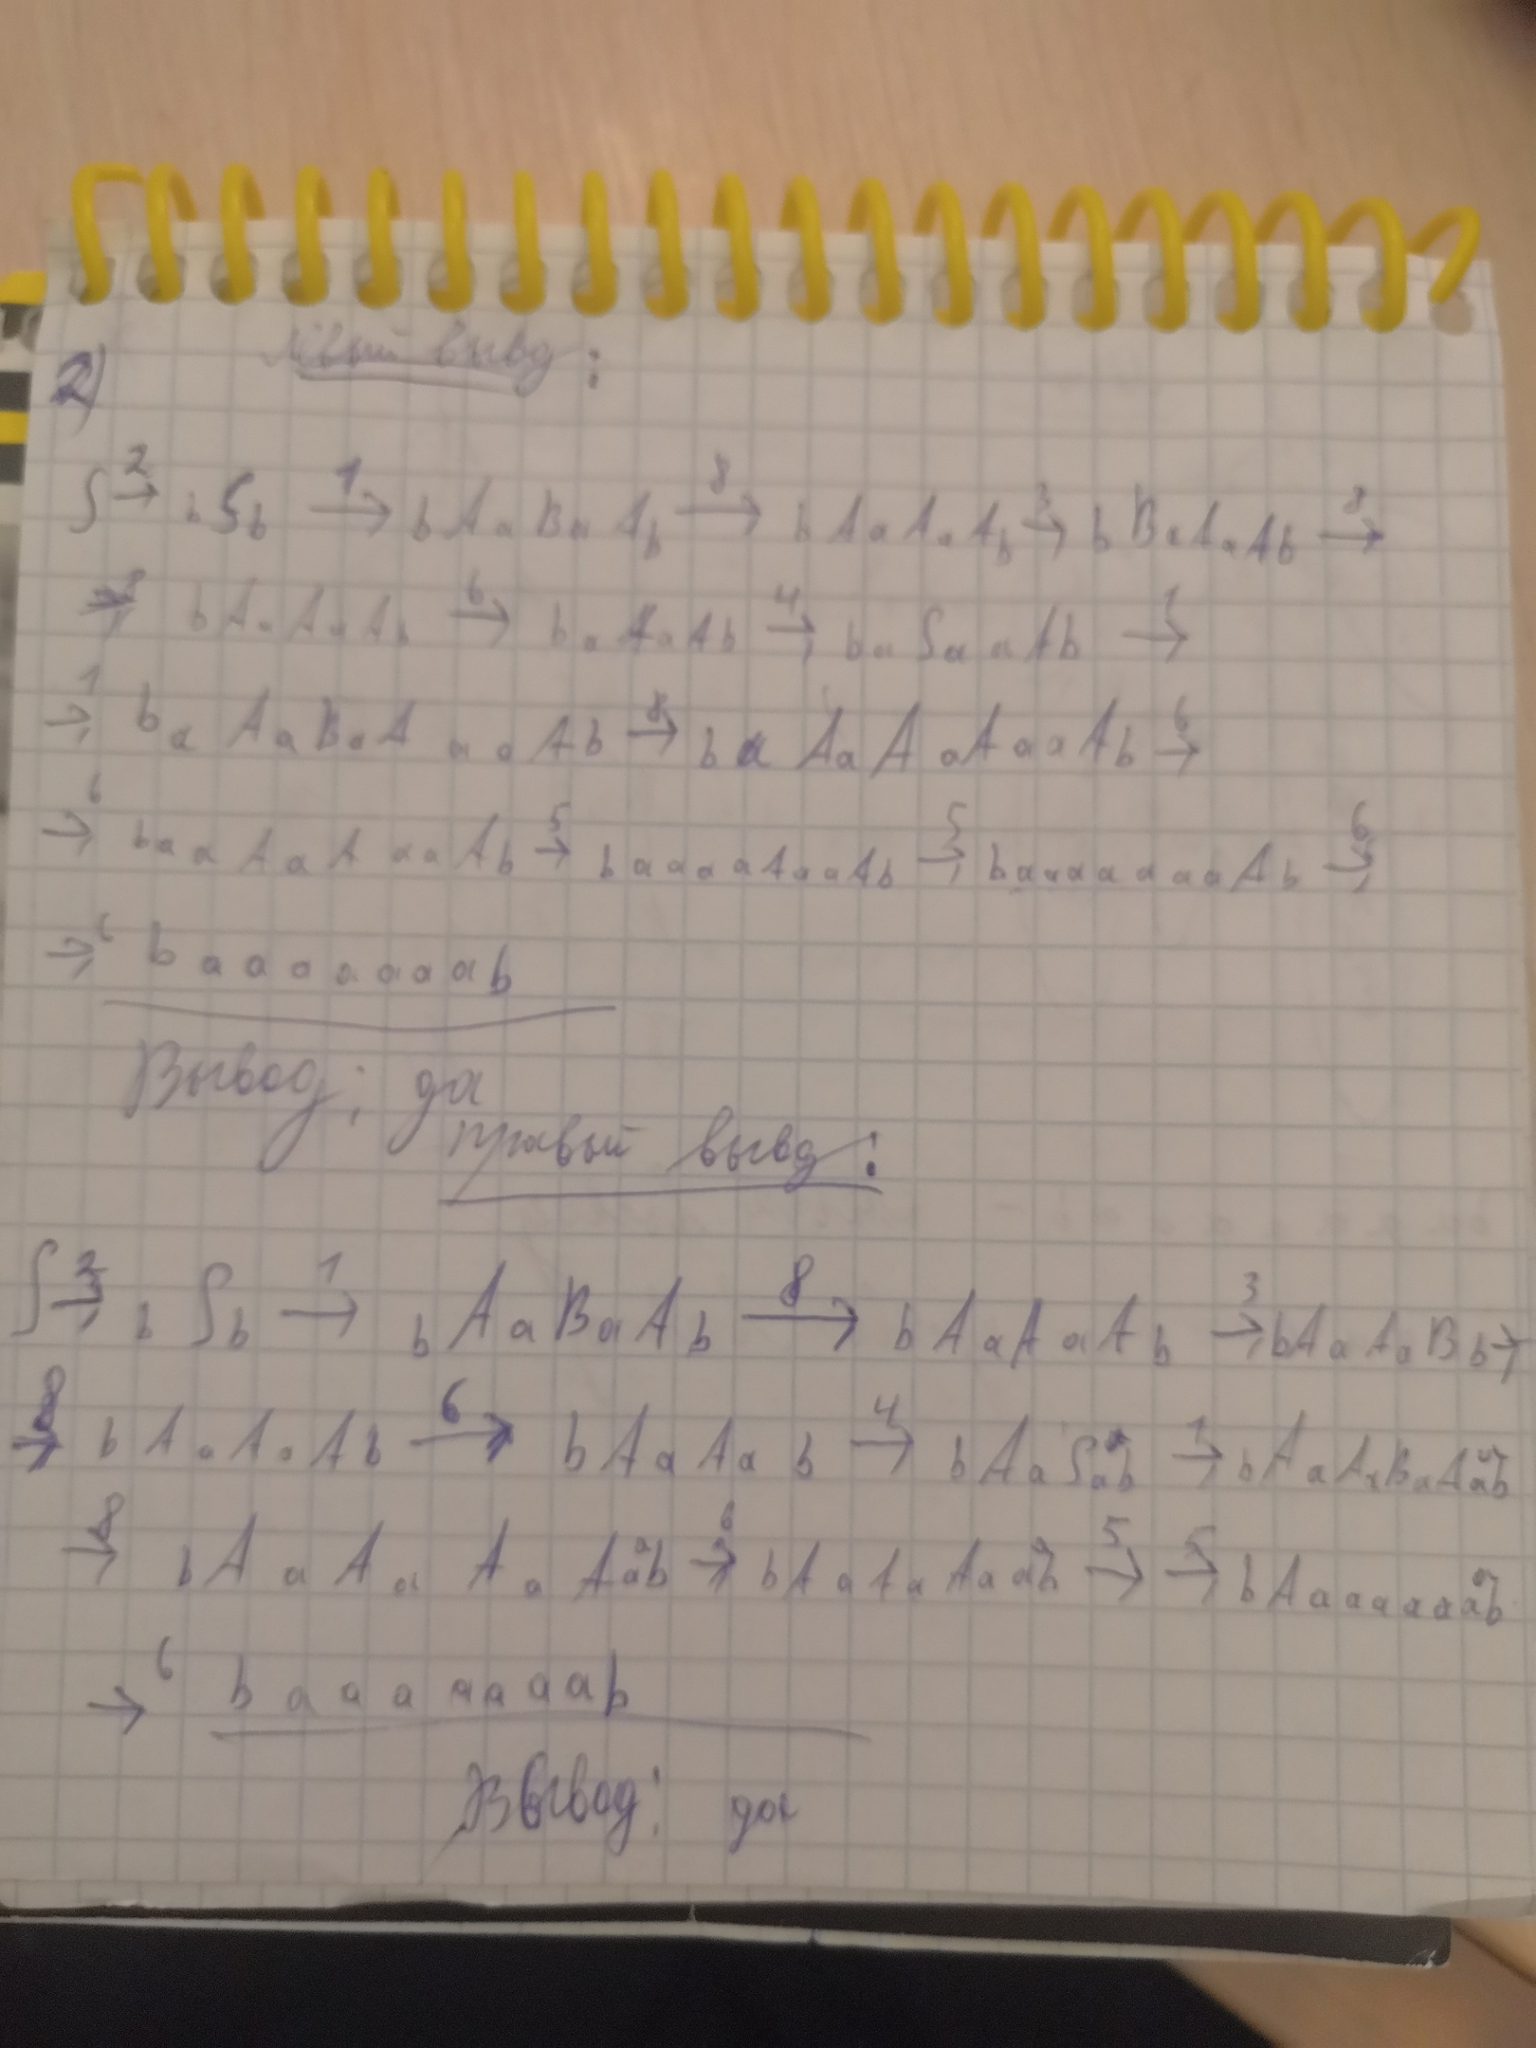 2) левый вывод:
S →2 bSb →1 bAaBaAb →8 bAaAaAb →3 bBaAaAb →8
→8 bAaAaAb →6 baAaAb →4 baSaaAb →1
→1 baAaBaAaaAb →8 baAaAaAaaAb →6
→6 baaAaAaaAb →5 baaaaAaaAb →5 baaaaaaaAb →6
→6 baaaaaaab
Вывод: да
правый вывод:
S →2 bSb →1 bAaBaAb →8 bAaAaAb →3 bAaAaBb →
→8 bAaAaAb →6 bAaAab →4 bAaSaab →1 bAaAaBaAaab
→8 bAaAaAaAaab →6 bAaAaAaaab →5 →5 bAaaaaaaab
→6 baaaaaaab
Вывод: да